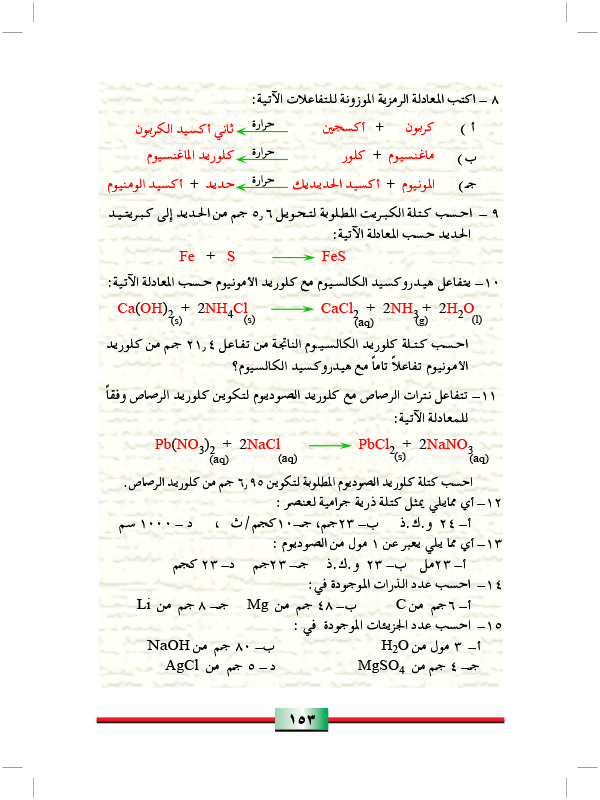 ٨ – اكتب المعادلة الرمزية الموزونة للتفاعلات الآتية:
أ ) كربون + أكسجين حرارة ثاني أكسيد الكربون
ب) ماغنسيوم + كلور حرارة كلوريد الماغنسيوم
جـ) المونيوم + أكسيد الحديديك حرارة حديد + أكسيد الومنيوم
٩ – احسب كتلة الكبريت المطلوبة لتحويل ٥٫٦ جم من الحديد إلى كبريتيد
الحديد حسب المعادلة الآتية:
Fe + S → FeS
١٠– يتفاعل هيدروكسيد الكالسيوم مع كلوريد الامونيوم حسب المعادلة الآتية:
Ca(OH)2(s) + 2NH4Cl(s) → CaCl2(aq) + 2NH3(g) + 2H2O(l)
احسب كتلة كلوريد الكالسيوم الناتجة من تفاعل ٢١٫٤ جم من كلوريد
الامونيوم تفاعلاً تاماً مع هيدروكسيد الكالسيوم؟
١١– تتفاعل نترات الرصاص مع كلوريد الصوديوم لتكوين كلوريد الرصاص وفقاً
للمعادلة الآتية:
Pb(NO3)2(aq) + 2NaCl(aq) → PbCl2(s) + 2NaNO3(aq)
احسب كتلة كلوريد الصوديوم المطلوبة لتكوين ٦٫٩٥ جم من كلوريد الرصاص.
١٢– أي ممايلي يمثل كتلة ذرية جرامية لعنصر :
أ– ٢٤ و.ك.ذ ب– ٢٣جم، جـ–١٠كجم/ث ، د – ١٠٠٠ سم
١٣– أي مما يلي يعبر عن ١ مول من الصوديوم :
أ– ٢٣مل ب– ٢٣ و.ك.ذ جـ– ٢٣جم د– ٢٣ كجم
١٤– احسب عدد الذرات الموجودة في:
أ– ٦جم من C ب– ٤٨ جم من Mg جـ– ٨ جم من Li
١٥– احسب عدد الجزيئات الموجودة في :
أ– ٣ مول من H2O ب– ٨٠ جم من NaOH
جـ– ٤ جم من MgSO4 د – ٥ جم من AgCl
١٥٣